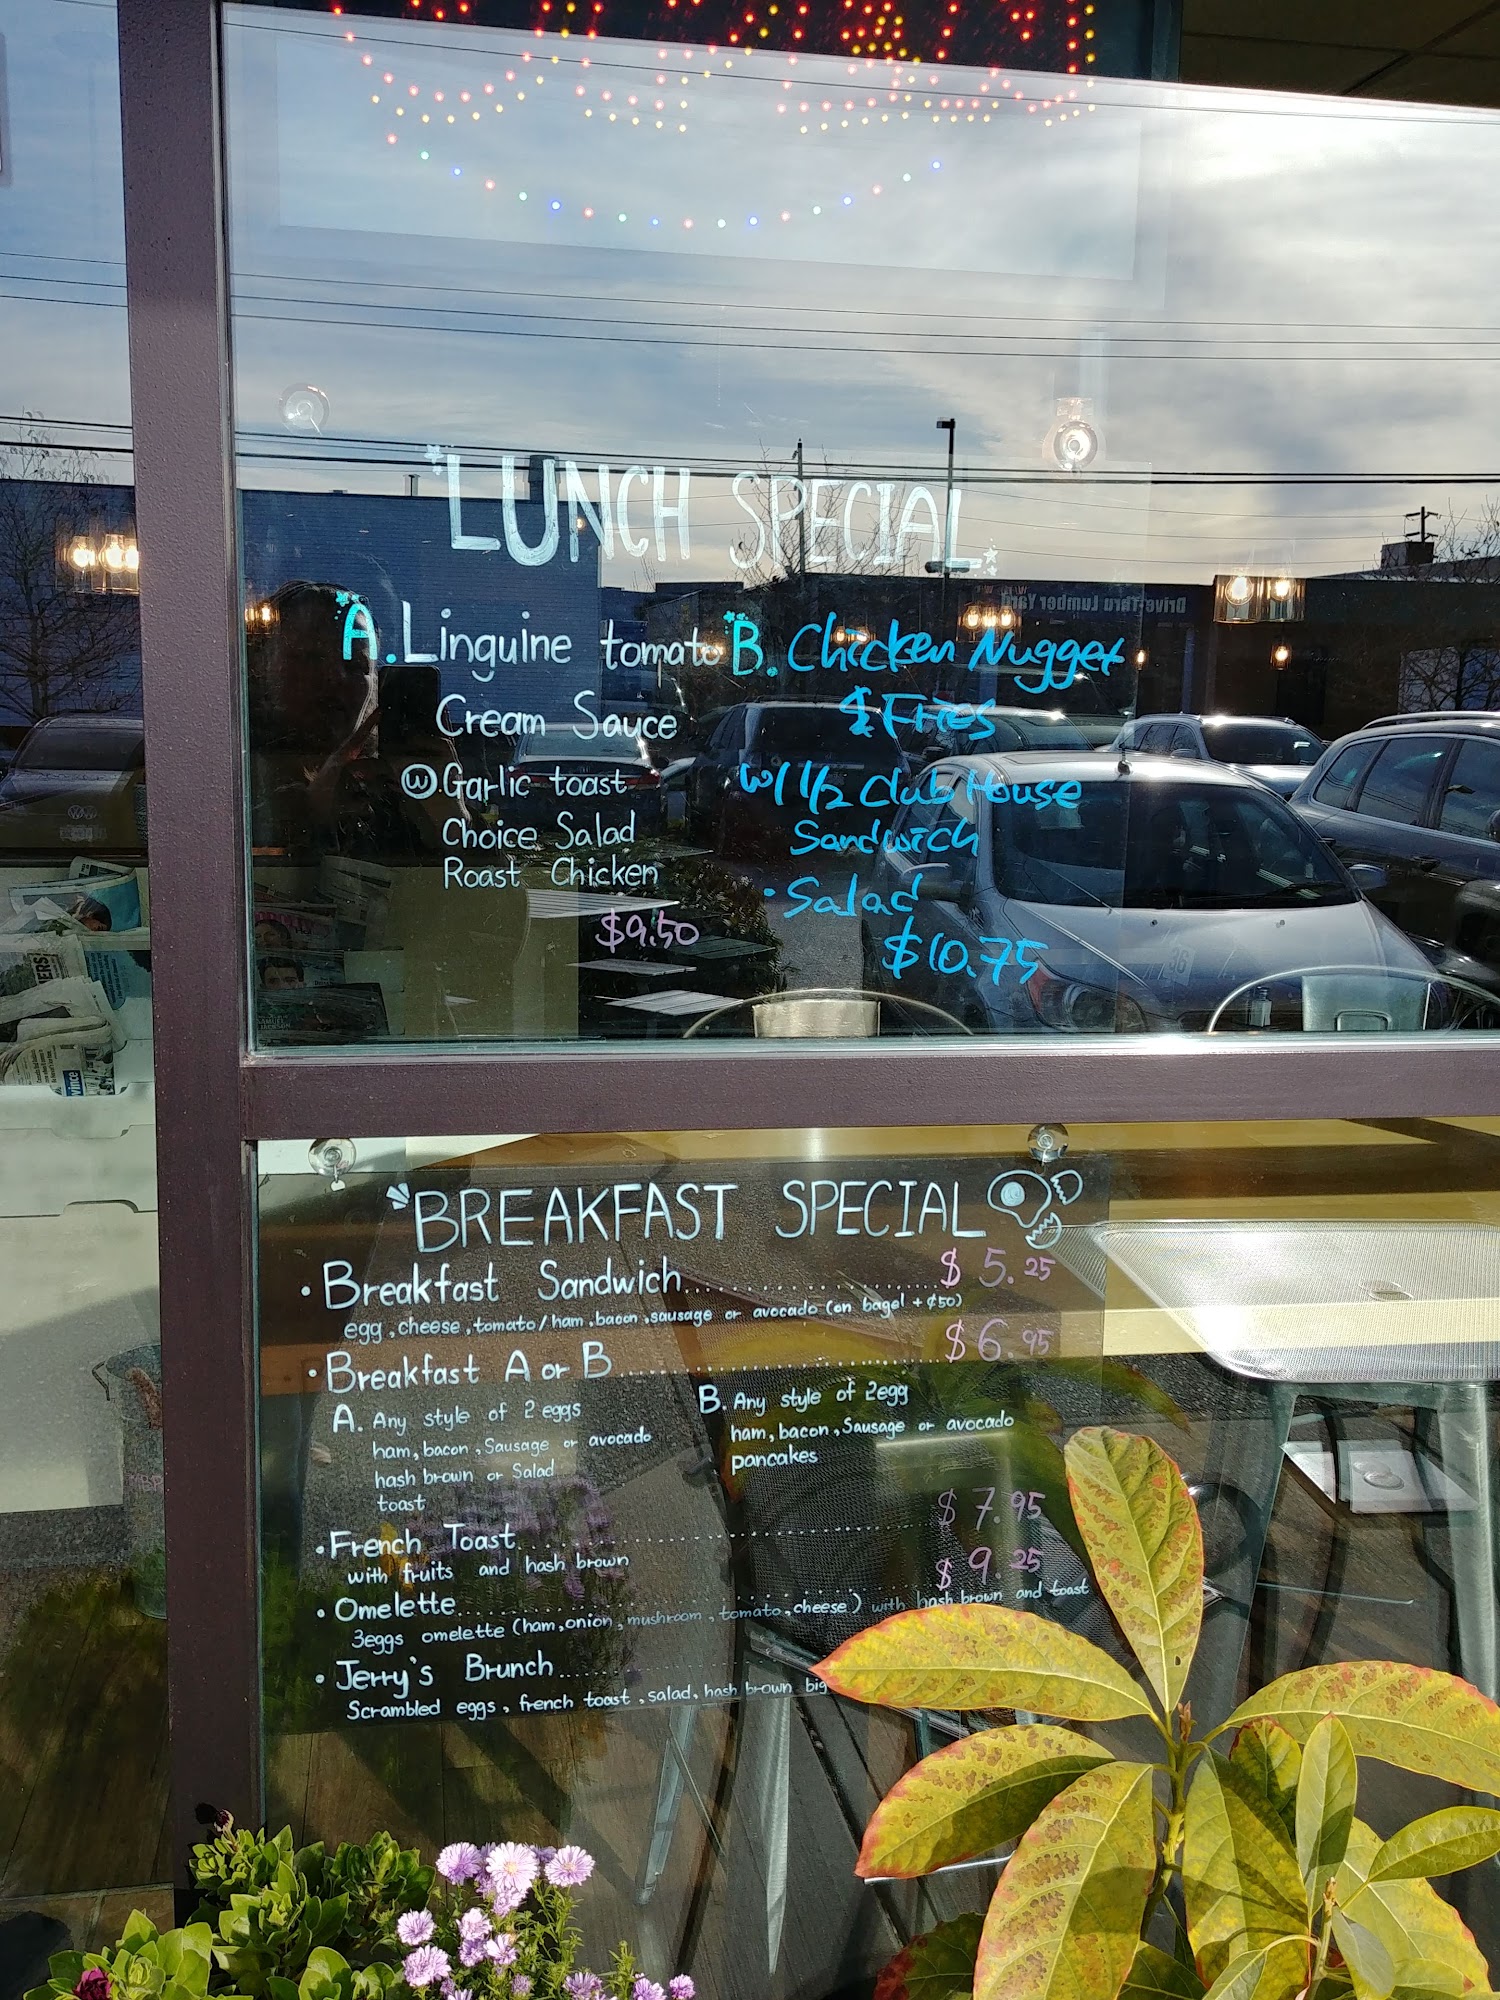 LUNCH SPECIAL
A. Linguine tomato
Cream Sauce
W. Garlic toast
Choice Salad
Roast Chicken
$9.50
B. Chicken Nugget
& Fries
w/ 1/2 Club House
Sandwich
• Salad
$10.75
Drive-Thru Lumber Yard
"BREAKFAST SPECIAL
• Breakfast Sandwich.................... $ 5.25
egg, cheese, tomato/ham, bacon, sausage or avocado (on bagel + ¢50)
• Breakfast A or B.................... $ 6.95
A. Any style of 2 eggs
ham, bacon, Sausage or avocado
hash brown or Salad
toast
B. Any style of 2egg
ham, bacon, Sausage or avocado
pancakes
• French Toast.................... $ 7.95
with fruits and hash brown
• Omelette.................... $ 9.25
3eggs omelette (ham, onion, mushroom, tomato, cheese) with hash brown and toast
• Jerry's Brunch..........
Scrambled eggs, french toast, salad, hash brown big